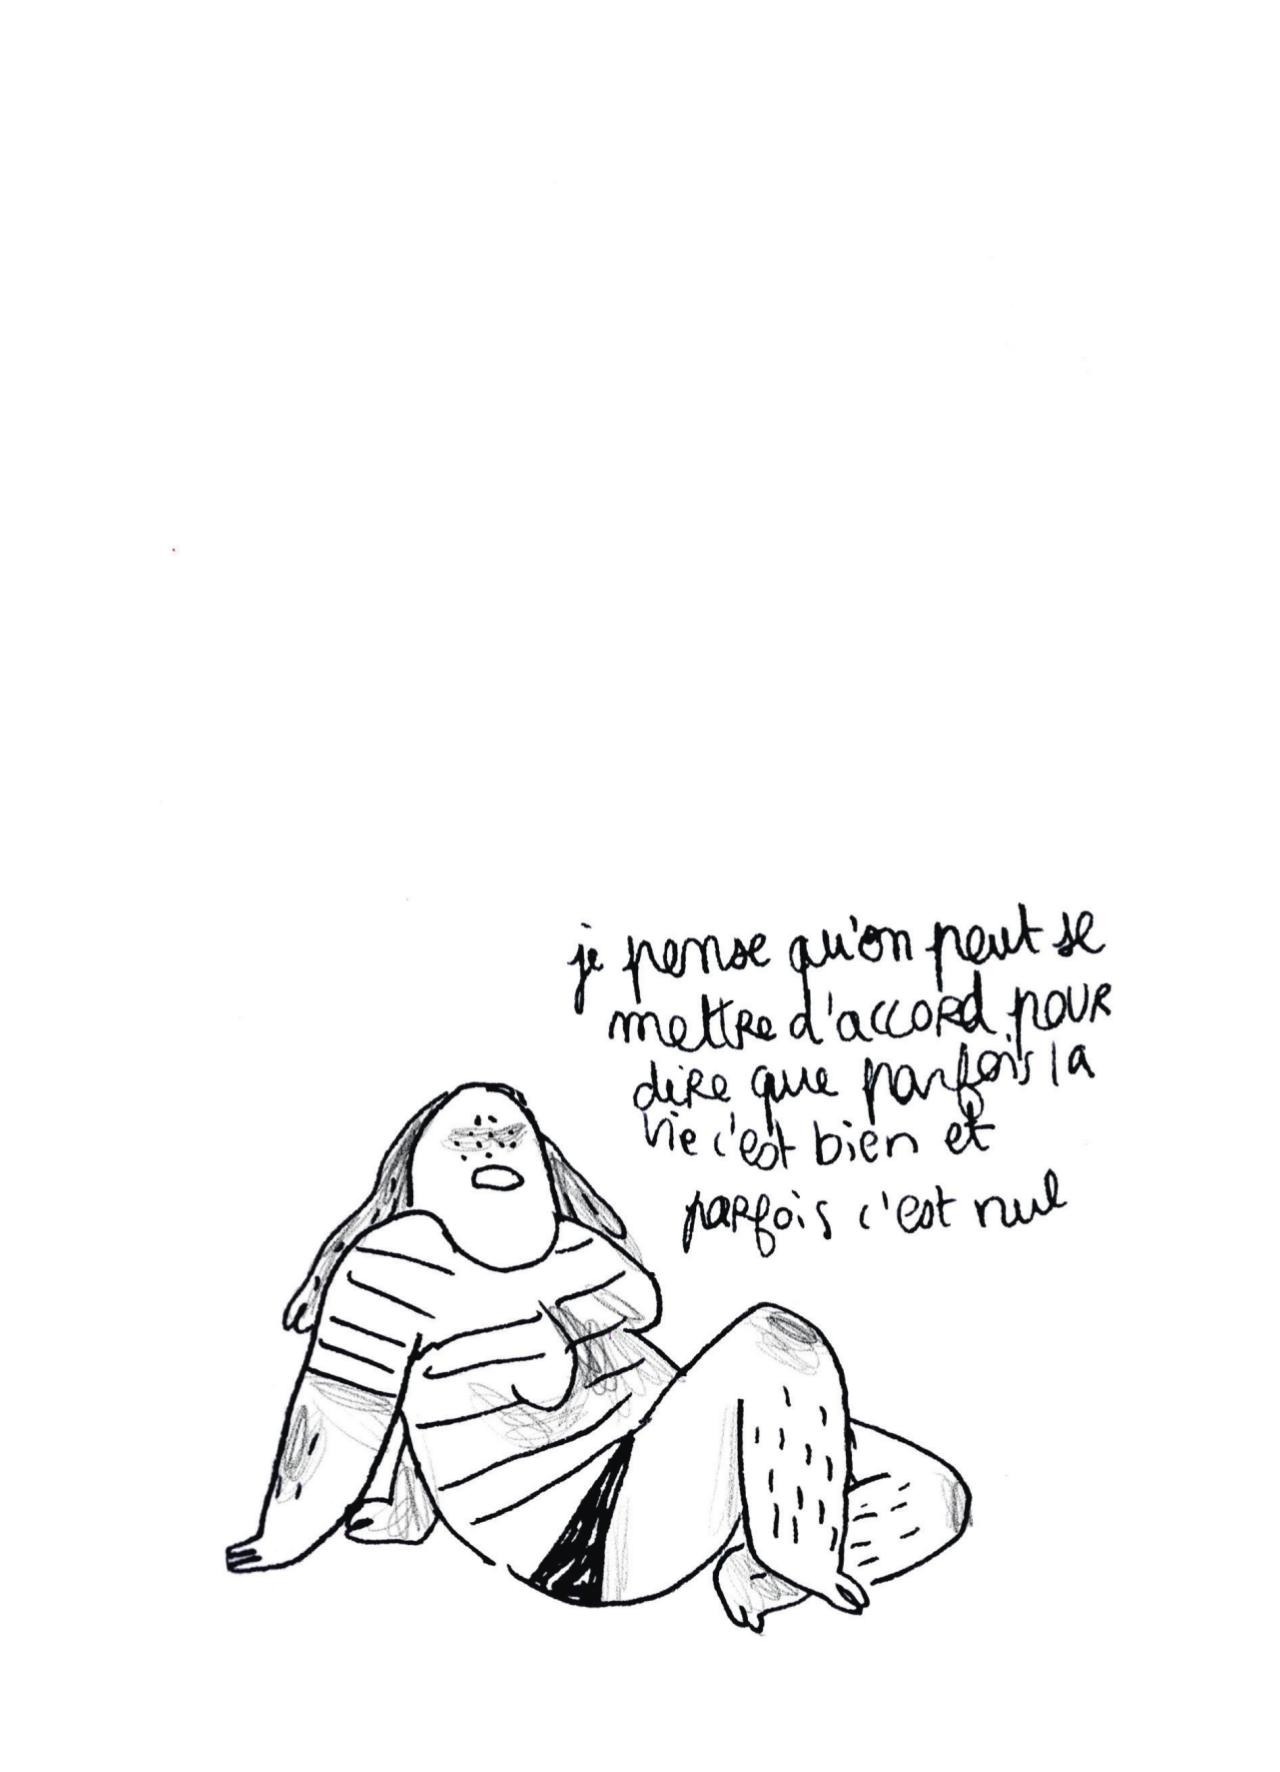 je pense qu'on peut se
mettre d'accord pour
dire que parfois la
vie c'est bien et
parfois c'est nul